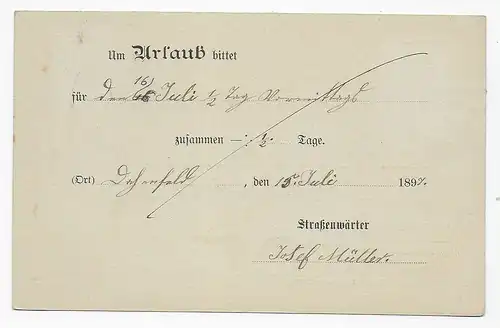 Um Urlaub bittet
16)
für den 16 Juli 1/2 Tag Vormittags
zusammen —: 1/2 Tage.
(Ort) Dahenfeld, den 15. Juli 1897.
Straßenwärter
Josef Müller.